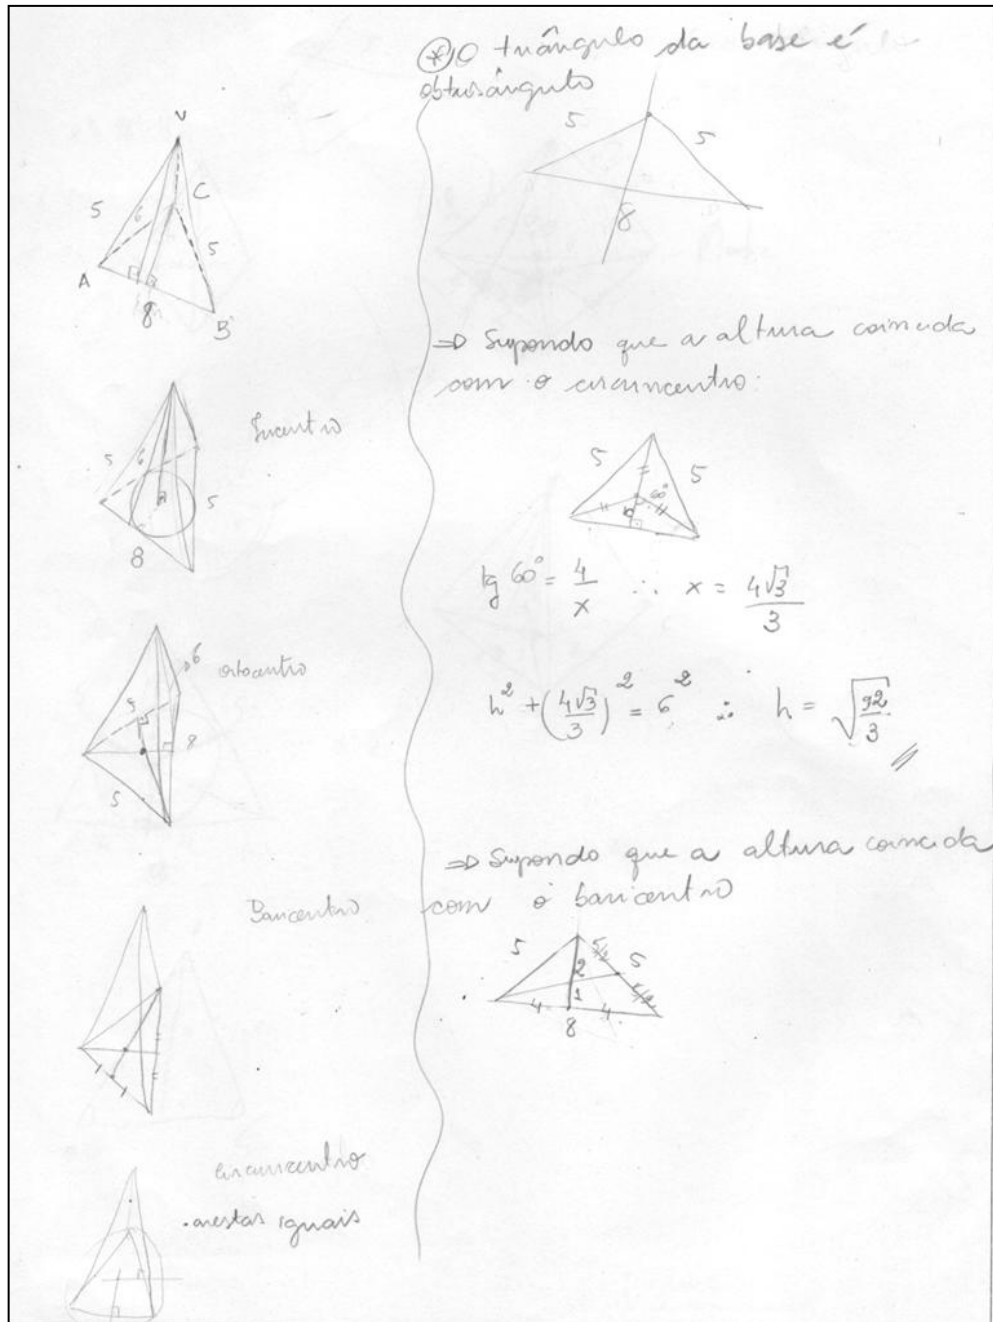 V
C
5
6
5
A
8
B
Incentro
5
6
5
8
6
ortocentro
5
8
5
Baricentro
circuncentro
arestas iguais
* O triângulo da base é
obtusângulo
5
5
8
⇒ Supondo que a altura coincida
com o circuncentro:
5
5
60°
tg 60° = 4/x ∴ x = 4√3/3
h² + (4√3/3)² = 6² ∴ h = √(92/3)
⇒ Supondo que a altura coincida
com o baricentro
5
5/2
5
2
1
5/2
4
4
8